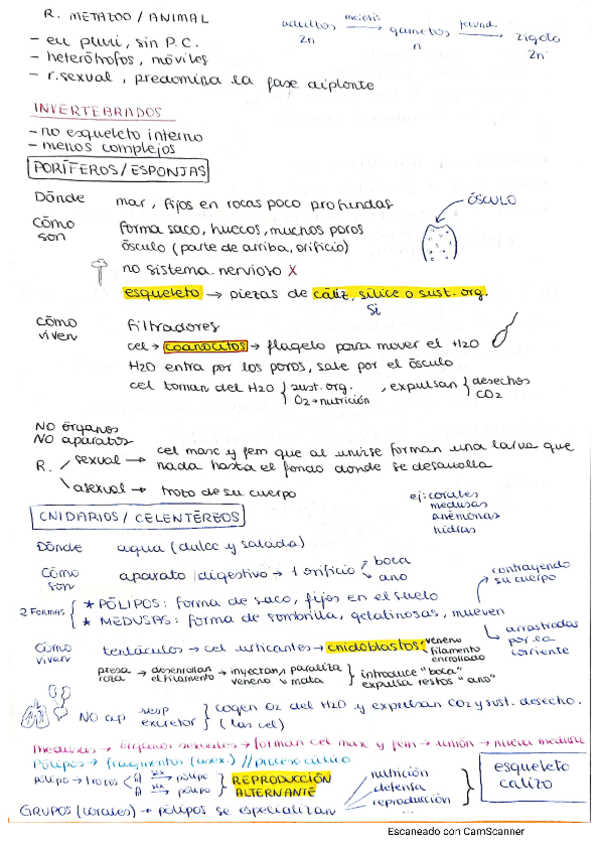 R. METAZOO / ANIMAL
adultos meiosis → gametos fecund. → zigoto
2n n 2n
- eu pluri, sin P.C.
- heterótrofos, móviles
- r.sexual, predomina la fase diplonte
INVERTEBRADOS
- no esqueleto interno
- menos complejos
PORÍFEROS/ESPONJAS
Dónde mar, fijos en rocas poco profundas
ÓSCULO
Cómo son forma saco, huecos, muchos poros
ósculo (parte de arriba, orificio)
no sistema nervioso X
esqueleto → piezas de caliz, sílice o sust. org.
Si
Cómo viven filtradores
cel → coanocitos → flagelo para mover el H2O
H2O entra por los poros, sale por el ósculo
cel toman del H2O { sust. org. O2 → nutrición , expulsan { desechos CO2
NO órganos
NO aparatos
R. / sexual → cel masc y fem que al unirse forman una larva que
nada hasta el fondo donde se desarrolla
\ asexual → troto de su cuerpo
CNIDARIOS / CELENTÉREOS
ej: corales
medusas
anémonas
hidras
Dónde agua (dulce y salada)
Cómo son aparato digestivo → 1 orificio < boca ano
contrayendo su cuerpo
2 FORMAS { ★ PÓLIPOS: forma de saco, fijos en el suelo
★ MEDUSAS: forma de sombrilla, gelatinosas, mueven
arrastradas por la corriente
Cómo viven tentáculos → cel urticantes → cnidoblastos: veneno filamento enrollado
presa roza → desenrollan el filamento → inyectan veneno , paraliza mata } introduce "boca"
expulsa restos "ano"
NO ap resp excretor } cogen O2 del H2O y expulsan CO2 y sust. desecho.
(las cel)
medusas → órganos sexuales → forman cel masc y fem → unión → nueva medusa
Pólipos → fragmentos (asex.) // proceso cíclico
pólipo → trozos < → pólipo → pólipo } REPRODUCCIÓN ALTERNANTE
esqueleto calizo
GRUPOS (corales) → pólipos se especializan nutrición defensa reproducción ...
Escaneado con CamScanner